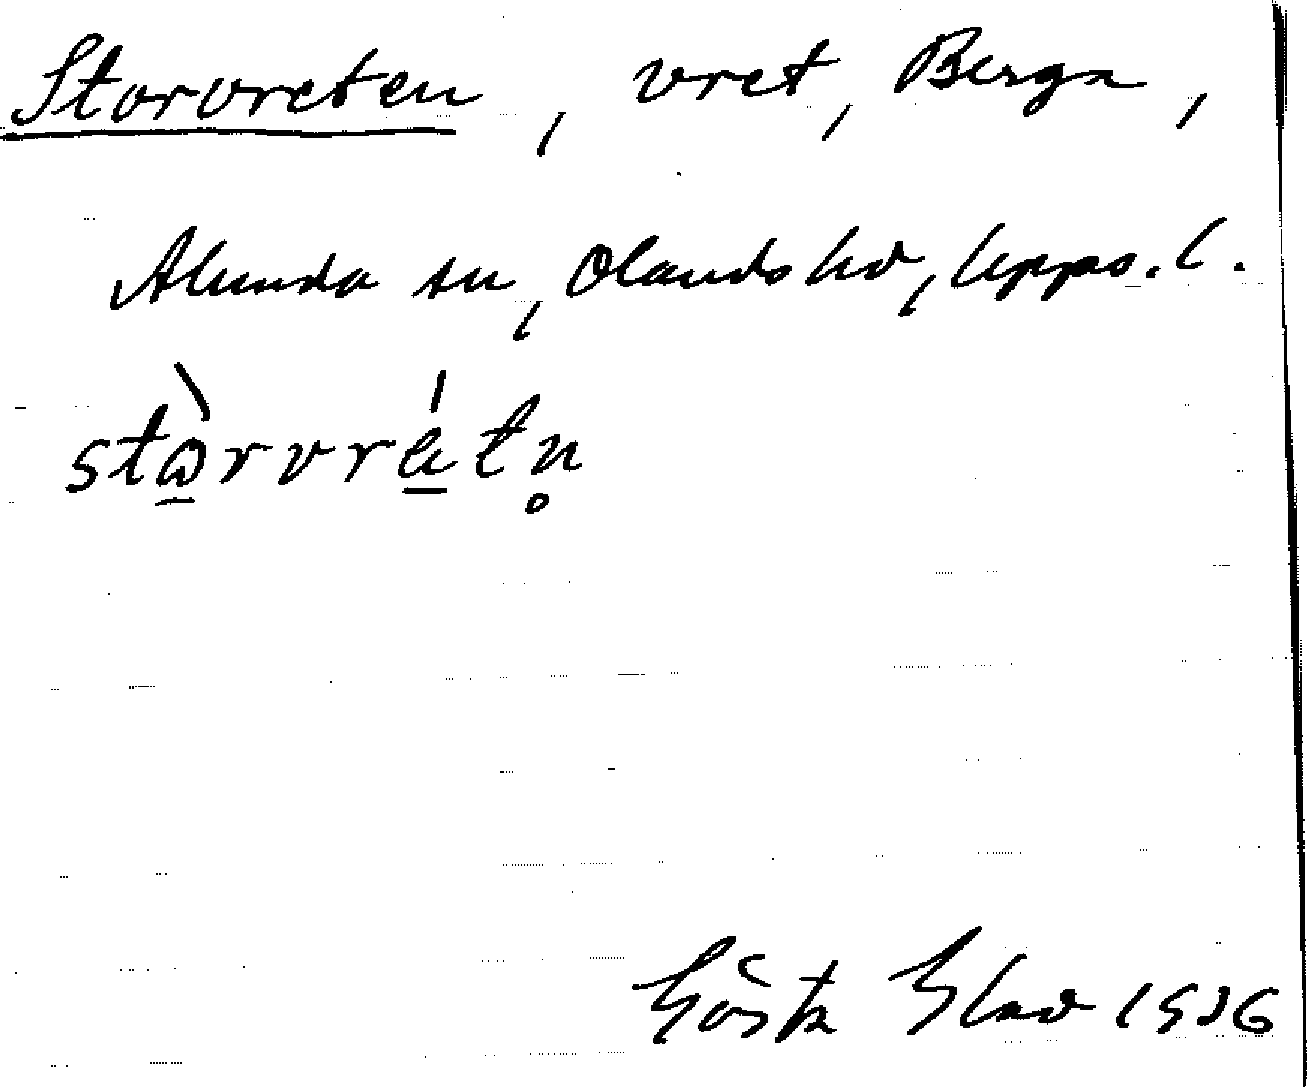 Storvreten, vret, Berga,
Alunda sn, Olands hd, Upps. l.
stòrvrétn̥
Gösta 1936